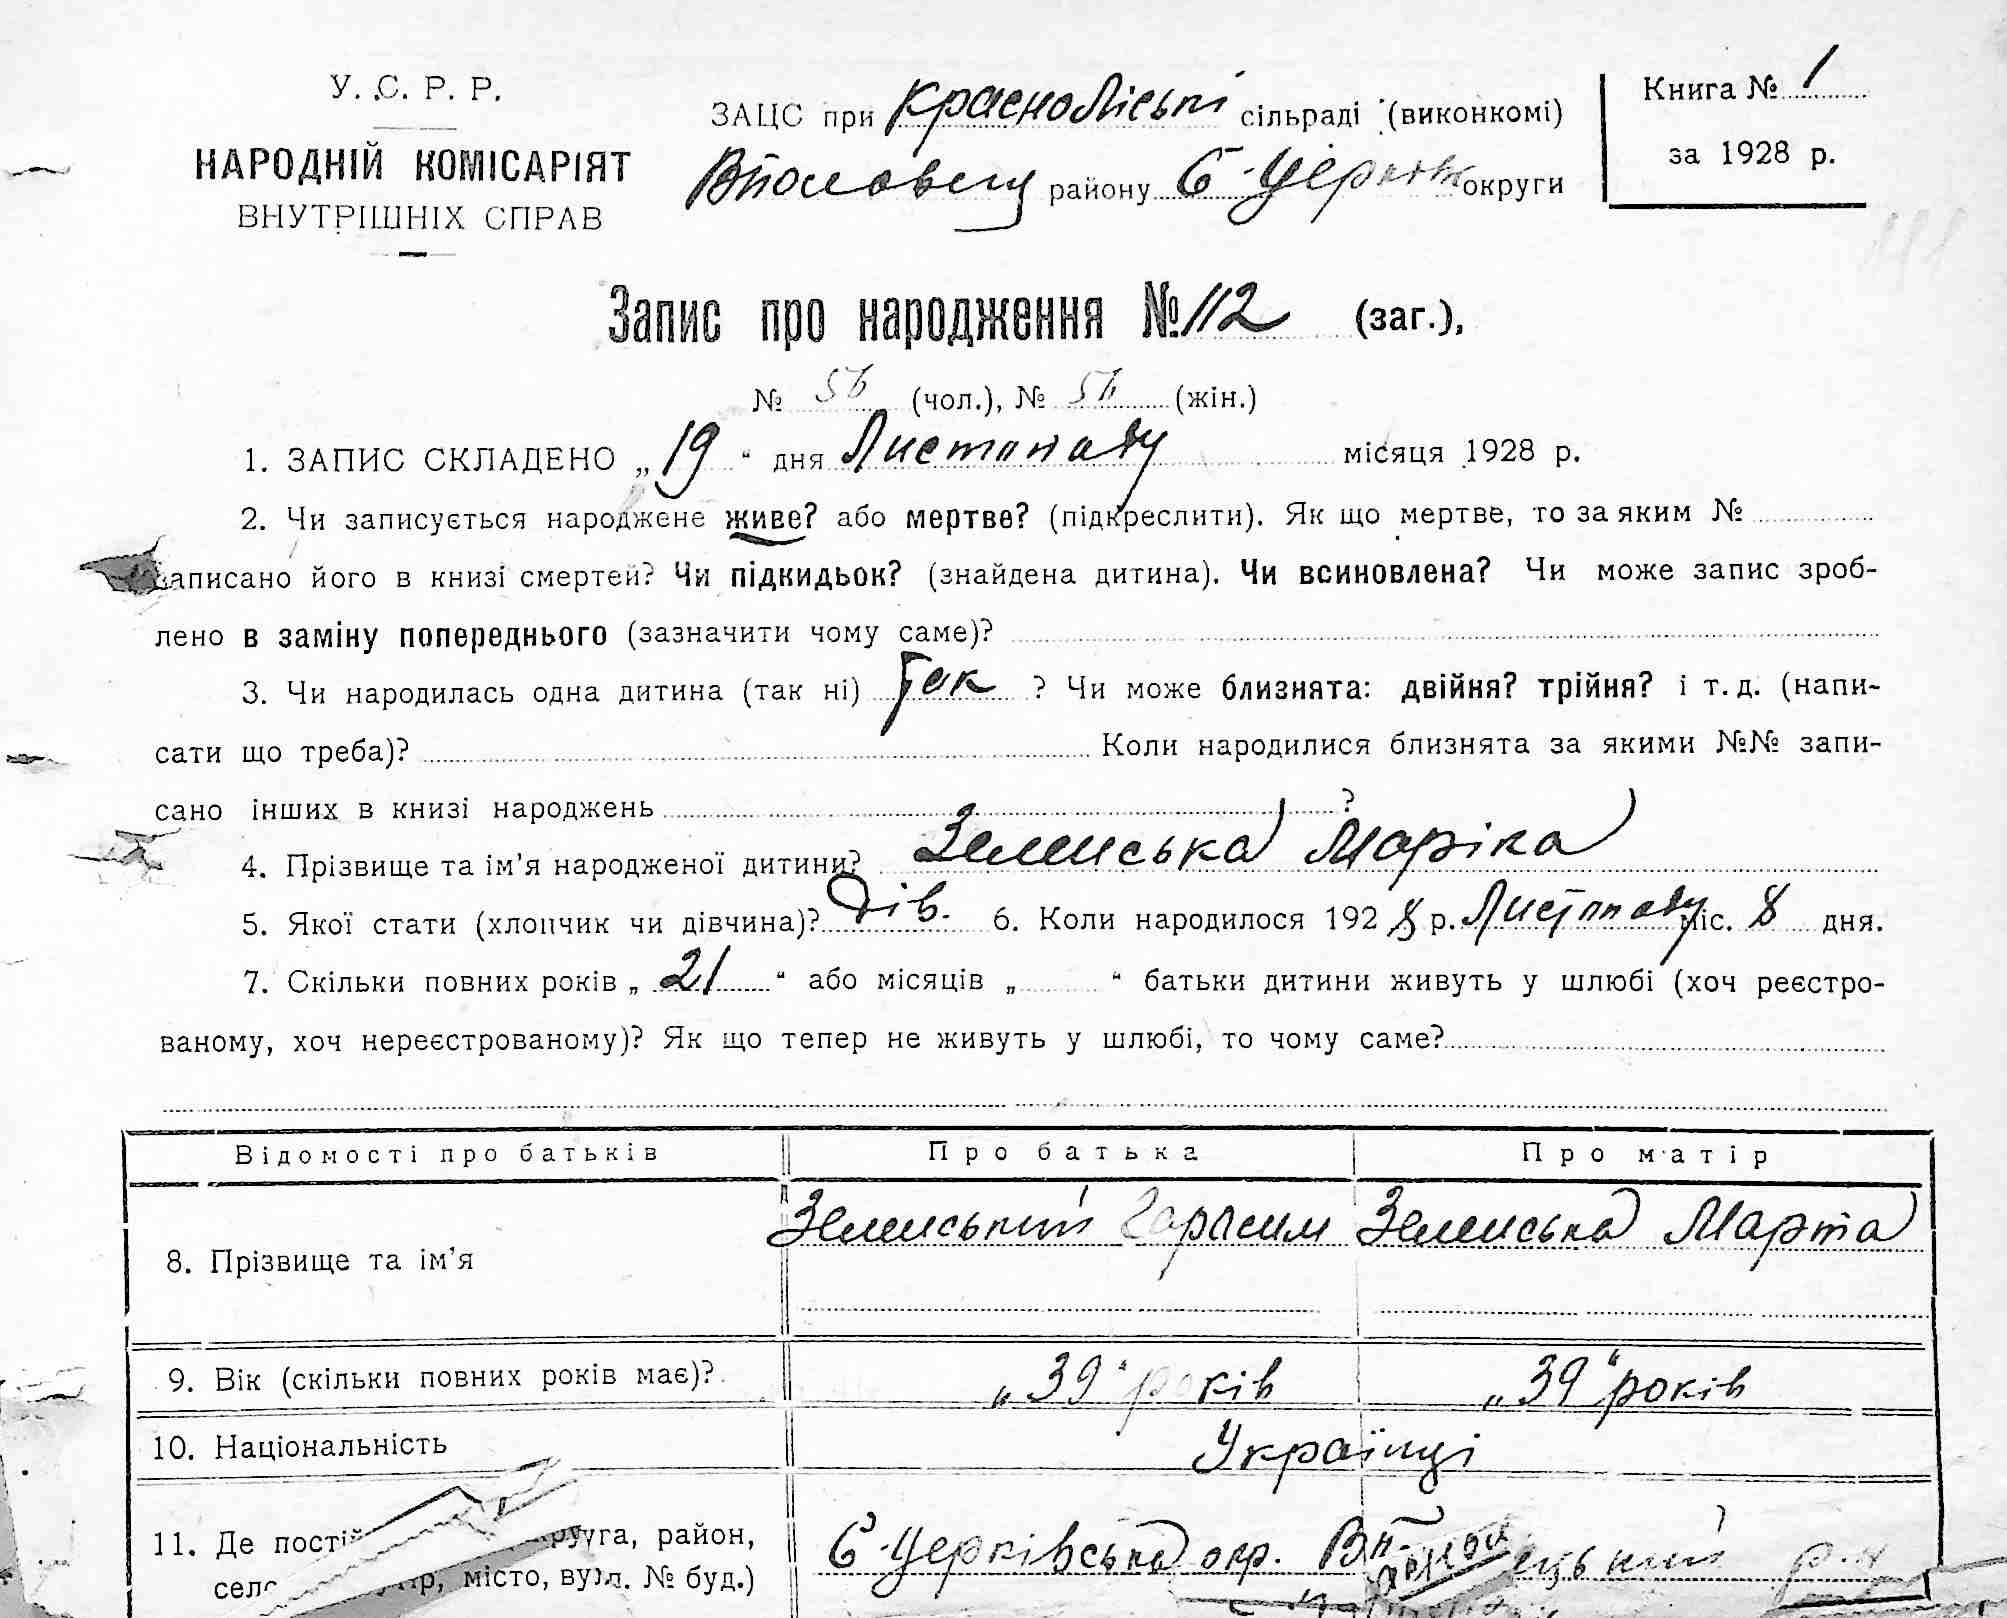 У. С. Р. Р.
НАРОДНІЙ КОМІСАРІЯТ
ВНУТРІШНІХ СПРАВ
ЗАЦС при Красноліські сільраді (виконкомі)
району Б-Церків округи
Книга № 1
за 1928 р.
Запис про народження № 112 (заг.),
№ 56 (чол.), № 56 (жін.)
1. ЗАПИС СКЛАДЕНО „19“ дня Листопаду місяця 1928 р.
2. Чи записується народжене живе? або мертве? (підкреслити). Як що мертве, то за яким №
записано його в книзі смертей? Чи підкидьок? (знайдена дитина). Чи всиновлена? Чи може запис зроб-
лено в заміну попереднього (зазначити чому саме)?
3. Чи народилась одна дитина (так ні) Так ? Чи може близнята: двійня? трійня? і т. д. (напи-
сати що треба)? Коли народилися близнята за якими №№ запи-
сано інших в книзі народжень ?
4. Прізвище та ім’я народженої дитини? Зеленська Маріка
5. Якої стати (хлопчик чи дівчина)? Дів. 6. Коли народилося 1928 р. Листопаду міс. 8 дня.
7. Скільки повних років „ 21 “ або місяців „ “ батьки дитини живуть у шлюбі (хоч реєстро-
ваному, хоч нереєстрованому)? Як що тепер не живуть у шлюбі, то чому саме?
Відомості про батьків Про батька Про матір
8. Прізвище та ім’я Зеленський Гарасим Зеленська Марта
9. Вік (скільки повних років має)? „39“ років „39“ років
10. Національність Українці
11. Де постій руга, район, Б-Церківська окр.
село місто, вул. № буд.)